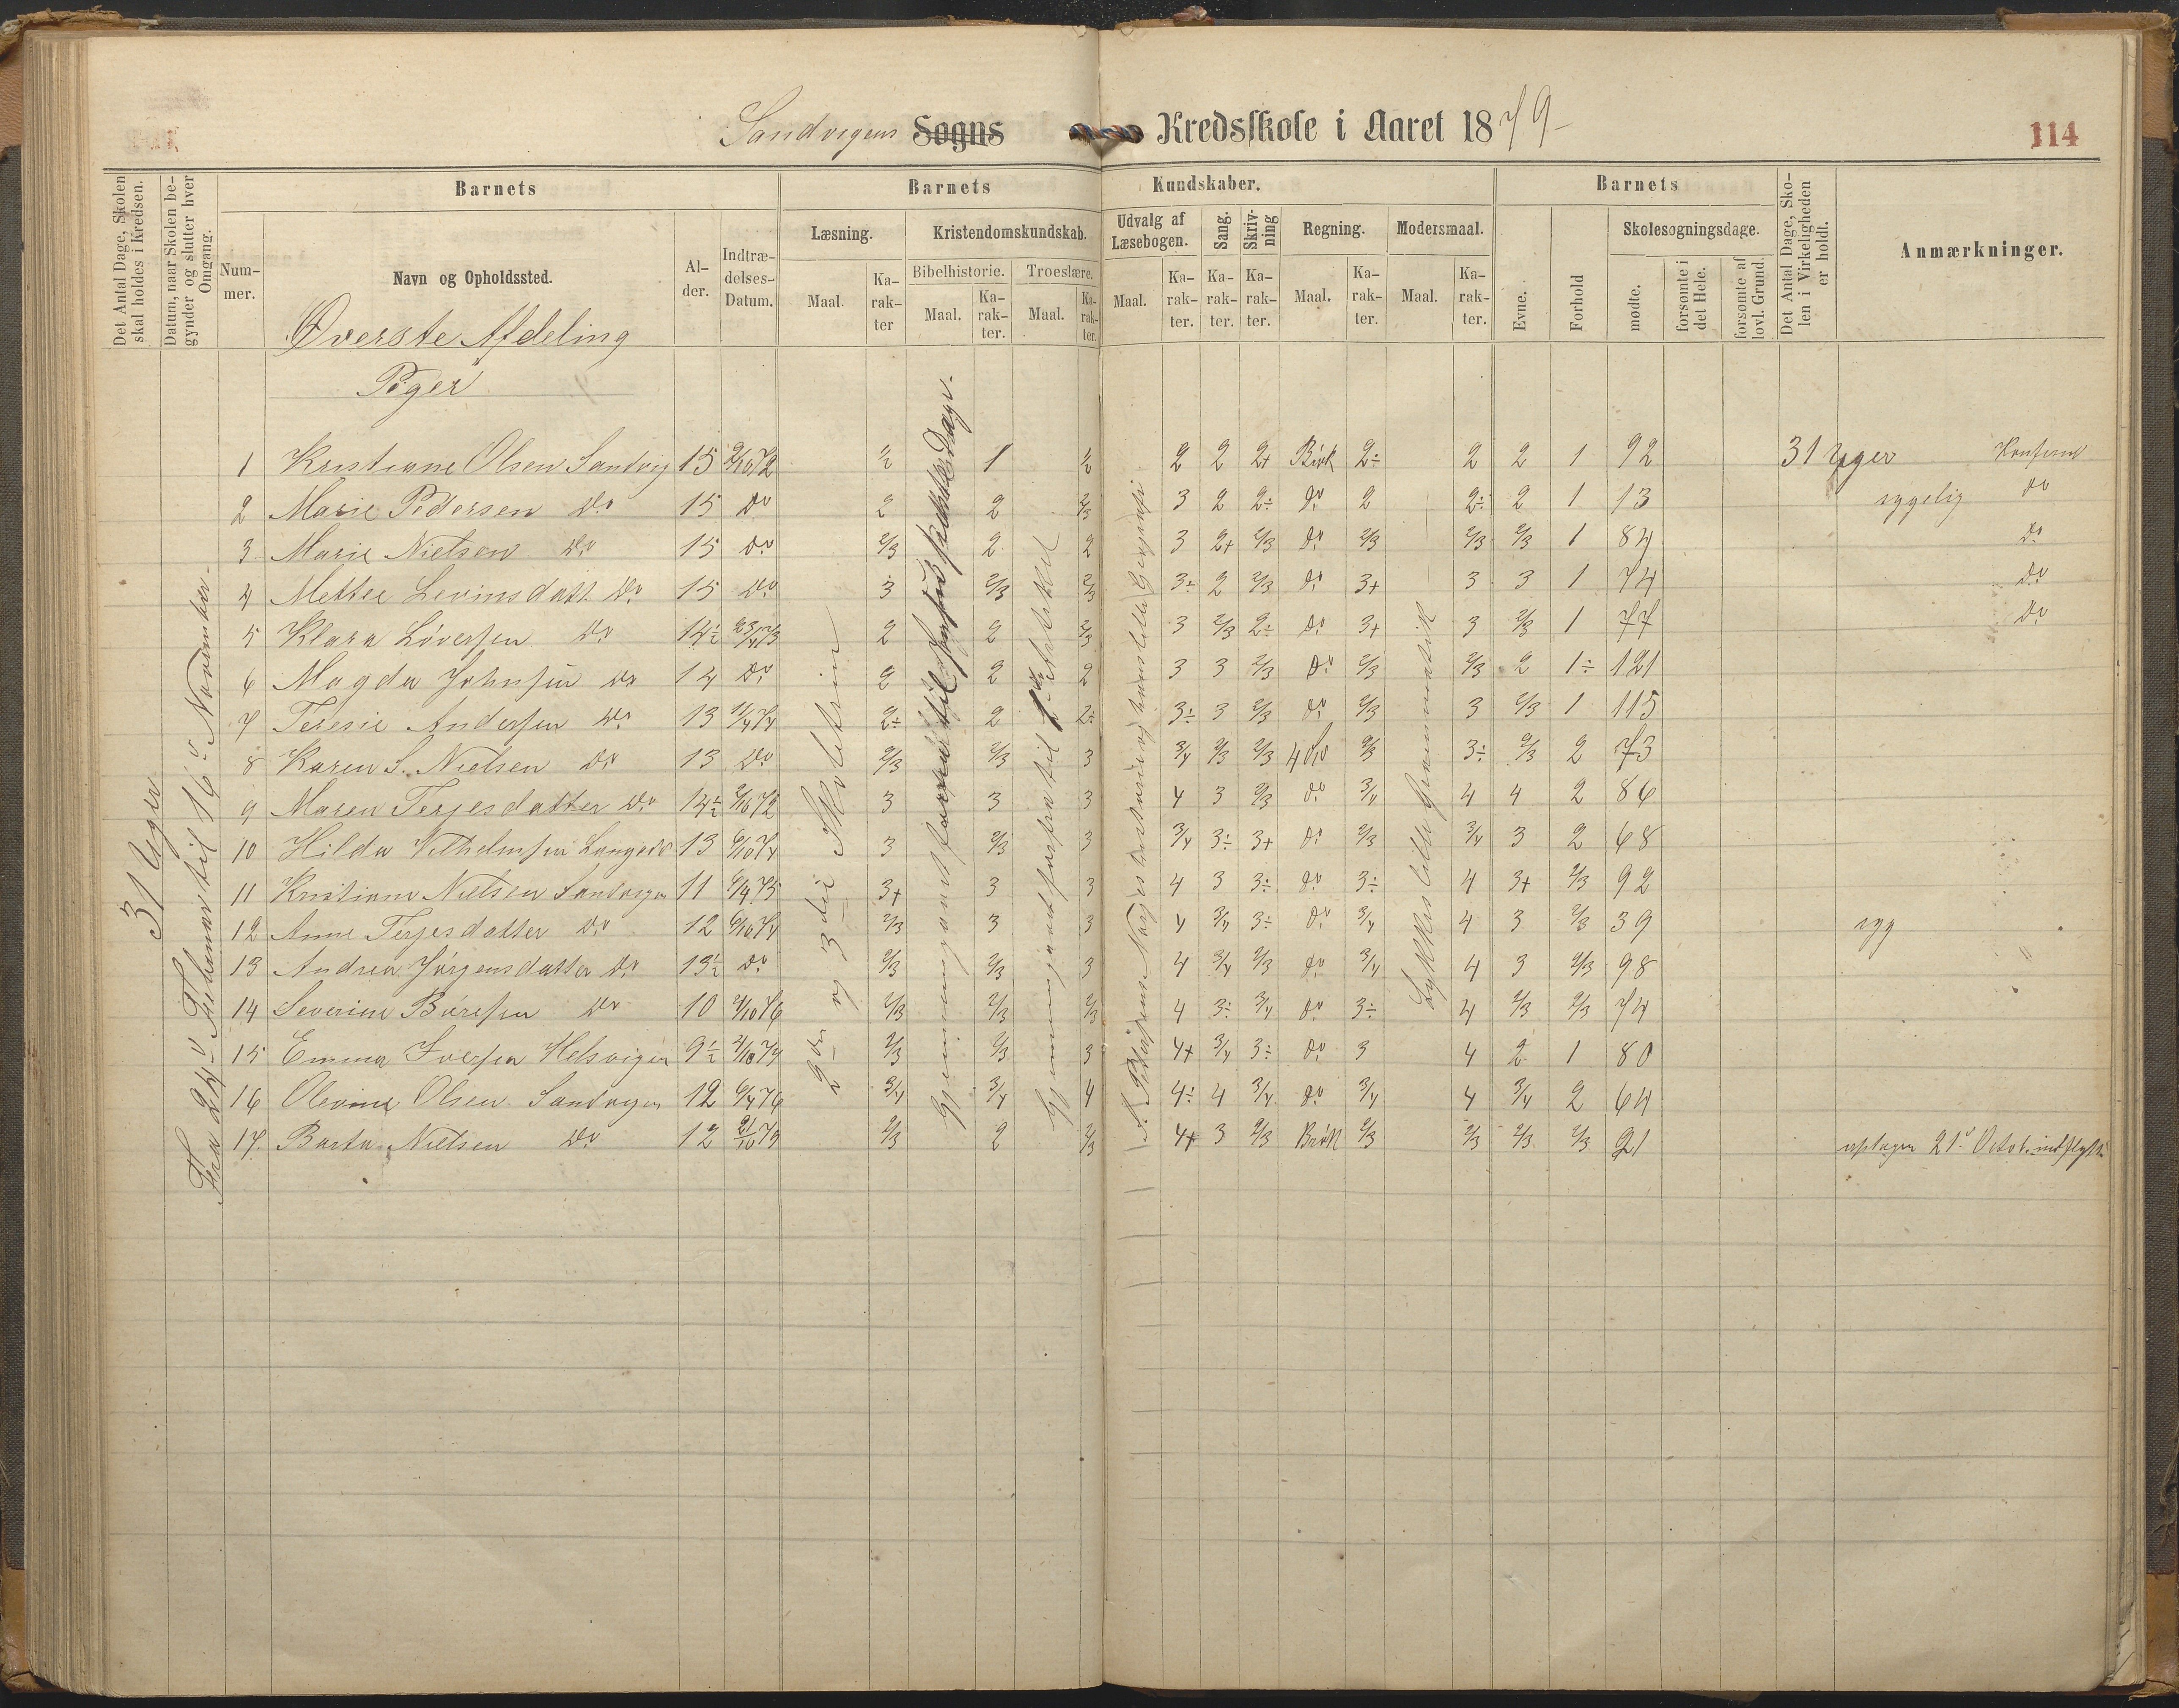 Sandvigens Sogns Kredsskole i Aaret 1879
114
Det Antal Dage, Skolen skal holdes i Kredsen.
Datum, naar Skolen begynder og slutter hver Omgang.
Barnets
Nummer.
Navn og Opholdssted.
Alder.
Indtrædelses-Datum.
Barnets Kundskaber.
Læsning.
Maal.
Karakter
Kristendomskundskab.
Bibelhistorie.
Maal.
Karakter.
Troeslære.
Maal.
Karakter.
Udvalg af Læsebogen.
Maal.
Karakter.
Sang.
Karakter.
Skrivning
Karakter.
Regning.
Maal.
Karakter.
Modersmaal.
Maal.
Karakter.
Barnets
Evne.
Forhold
Skolesøgningsdage.
mødte.
forsømte i det Hele.
forsømte af lovl. Grund.
Det Antal Dage, Skolen i Virkeligheden er holdt.
Anmærkninger.
Øverste Afdeling
Piger
31 Uger
Fra 24de Februar til 16de November
2den og 3die Skoletrin
1 Kristiane Olsen Sandvig 15 2/10 72 ½ 1 ½ 2 2 2+ Brøk 2÷ 2 2 1 92 31 Uger Konfirm
2 Marie Pedersen Do 15 Do 2 2 2/3 3 2 2÷ Do 2 2÷ 2 1 13 sygelig do
3 Marie Nielsen Do 15 Do 2/3 2 2 3 2+ 2/3 Do 2/3 2/3 2/3 1 84 do
4 Mettee Levinsdatt. Do 15 Do 3 2/3 2/3 3÷ 2 2/3 Do 3+ 3 3 1 74 do
5 Klara Løversen Do 14½ 23/4 73 2 2 2/3 3 2/3 2÷ Do 3+ 3 2/3 1 77 do
6 Magda Johnsen Do 14 Do 2 2 2 3 3 2/3 Do 2/3 2/3 2 1÷ 121
7 Teresie Andersen Do 13 4/74 2÷ 2 2÷ 3÷ 3 2/3 Do 2/3 3 2/3 1 115
8 Karen S. Nielsen Do 13 Do 2/3 2/3 3 3/4 2/3 2/3 2/3 3÷ 2/3 2 73
9 Maren Terjesdatter Do 14½ 2/10 72 3 3 3 4 3 2/3 Do 3/4 4 4 2 86
10 Hilda Vilhelmsen 13 6/10 74 3 2/3 3 3/4 3÷ 3+ Do 2/3 3/4 3 2 68
11 Kristiane Nielsen Sandvigen 11 6/4 75 3+ 3 3 4 3 3÷ Do 3÷ 4 3+ 2/3 92
12 Anne Terjesdatter Do 12 6/10 74 2/3 3 3 4 3/4 3÷ Do 3/4 4 3 2/3 39 syg
13 Andrea Jørgensdatter Do 13½ Do 2/3 2/3 3 4 3/4 2/3 Do 3/4 4 3 2/3 98
14 Severine Do 10 2/10 76 2/3 2/3 2/3 4 3÷ 3/4 Do 3÷ 4 2/3 2/3 74
15 Emma Iversen Helsvigen 9½ 2/3 2/3 3 4+ 3/4 3÷ Do 3 4 2 1 80
16 Olevine Olsen Sandvigen 12 6/4 76 3/4 3/4 4 4÷ 4 3/4 Do 3/4 4 3/4 2 64
17. Berta Nielsen Do 12 21/10 79 2/3 2 2/3 4+ 3 2/3 Brøk 2/3 2/3 2/3 2/3 21 optagen 21de Octob. indflytt